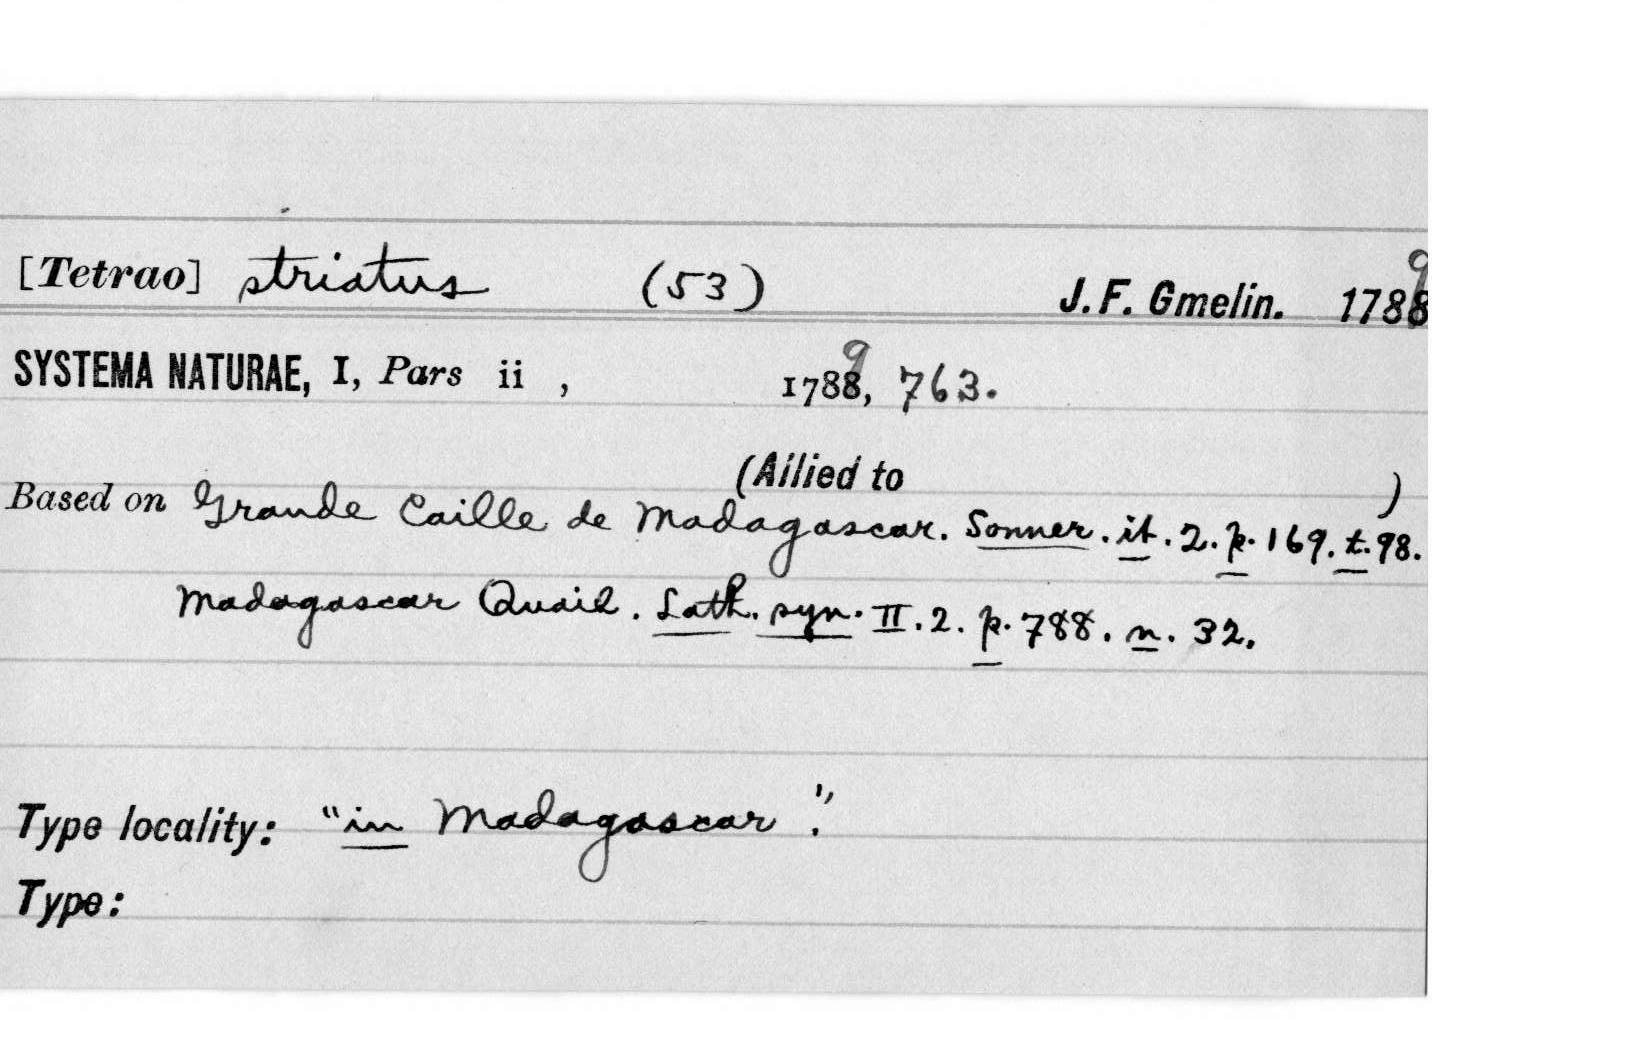 [Tetrao] striatus (53) J. F. Gmelin. 1789
SYSTEMA NATURAE, I, Pars ii , 1789, 763.
(Allied to )
Based on Grande Caille de Madagascar. Sonner. it. 2. p. 169. t. 98.
Madagascar Quail. Lath. syn. II. 2. p. 788. n. 32.
Type locality: "in Madagascar."
Type: